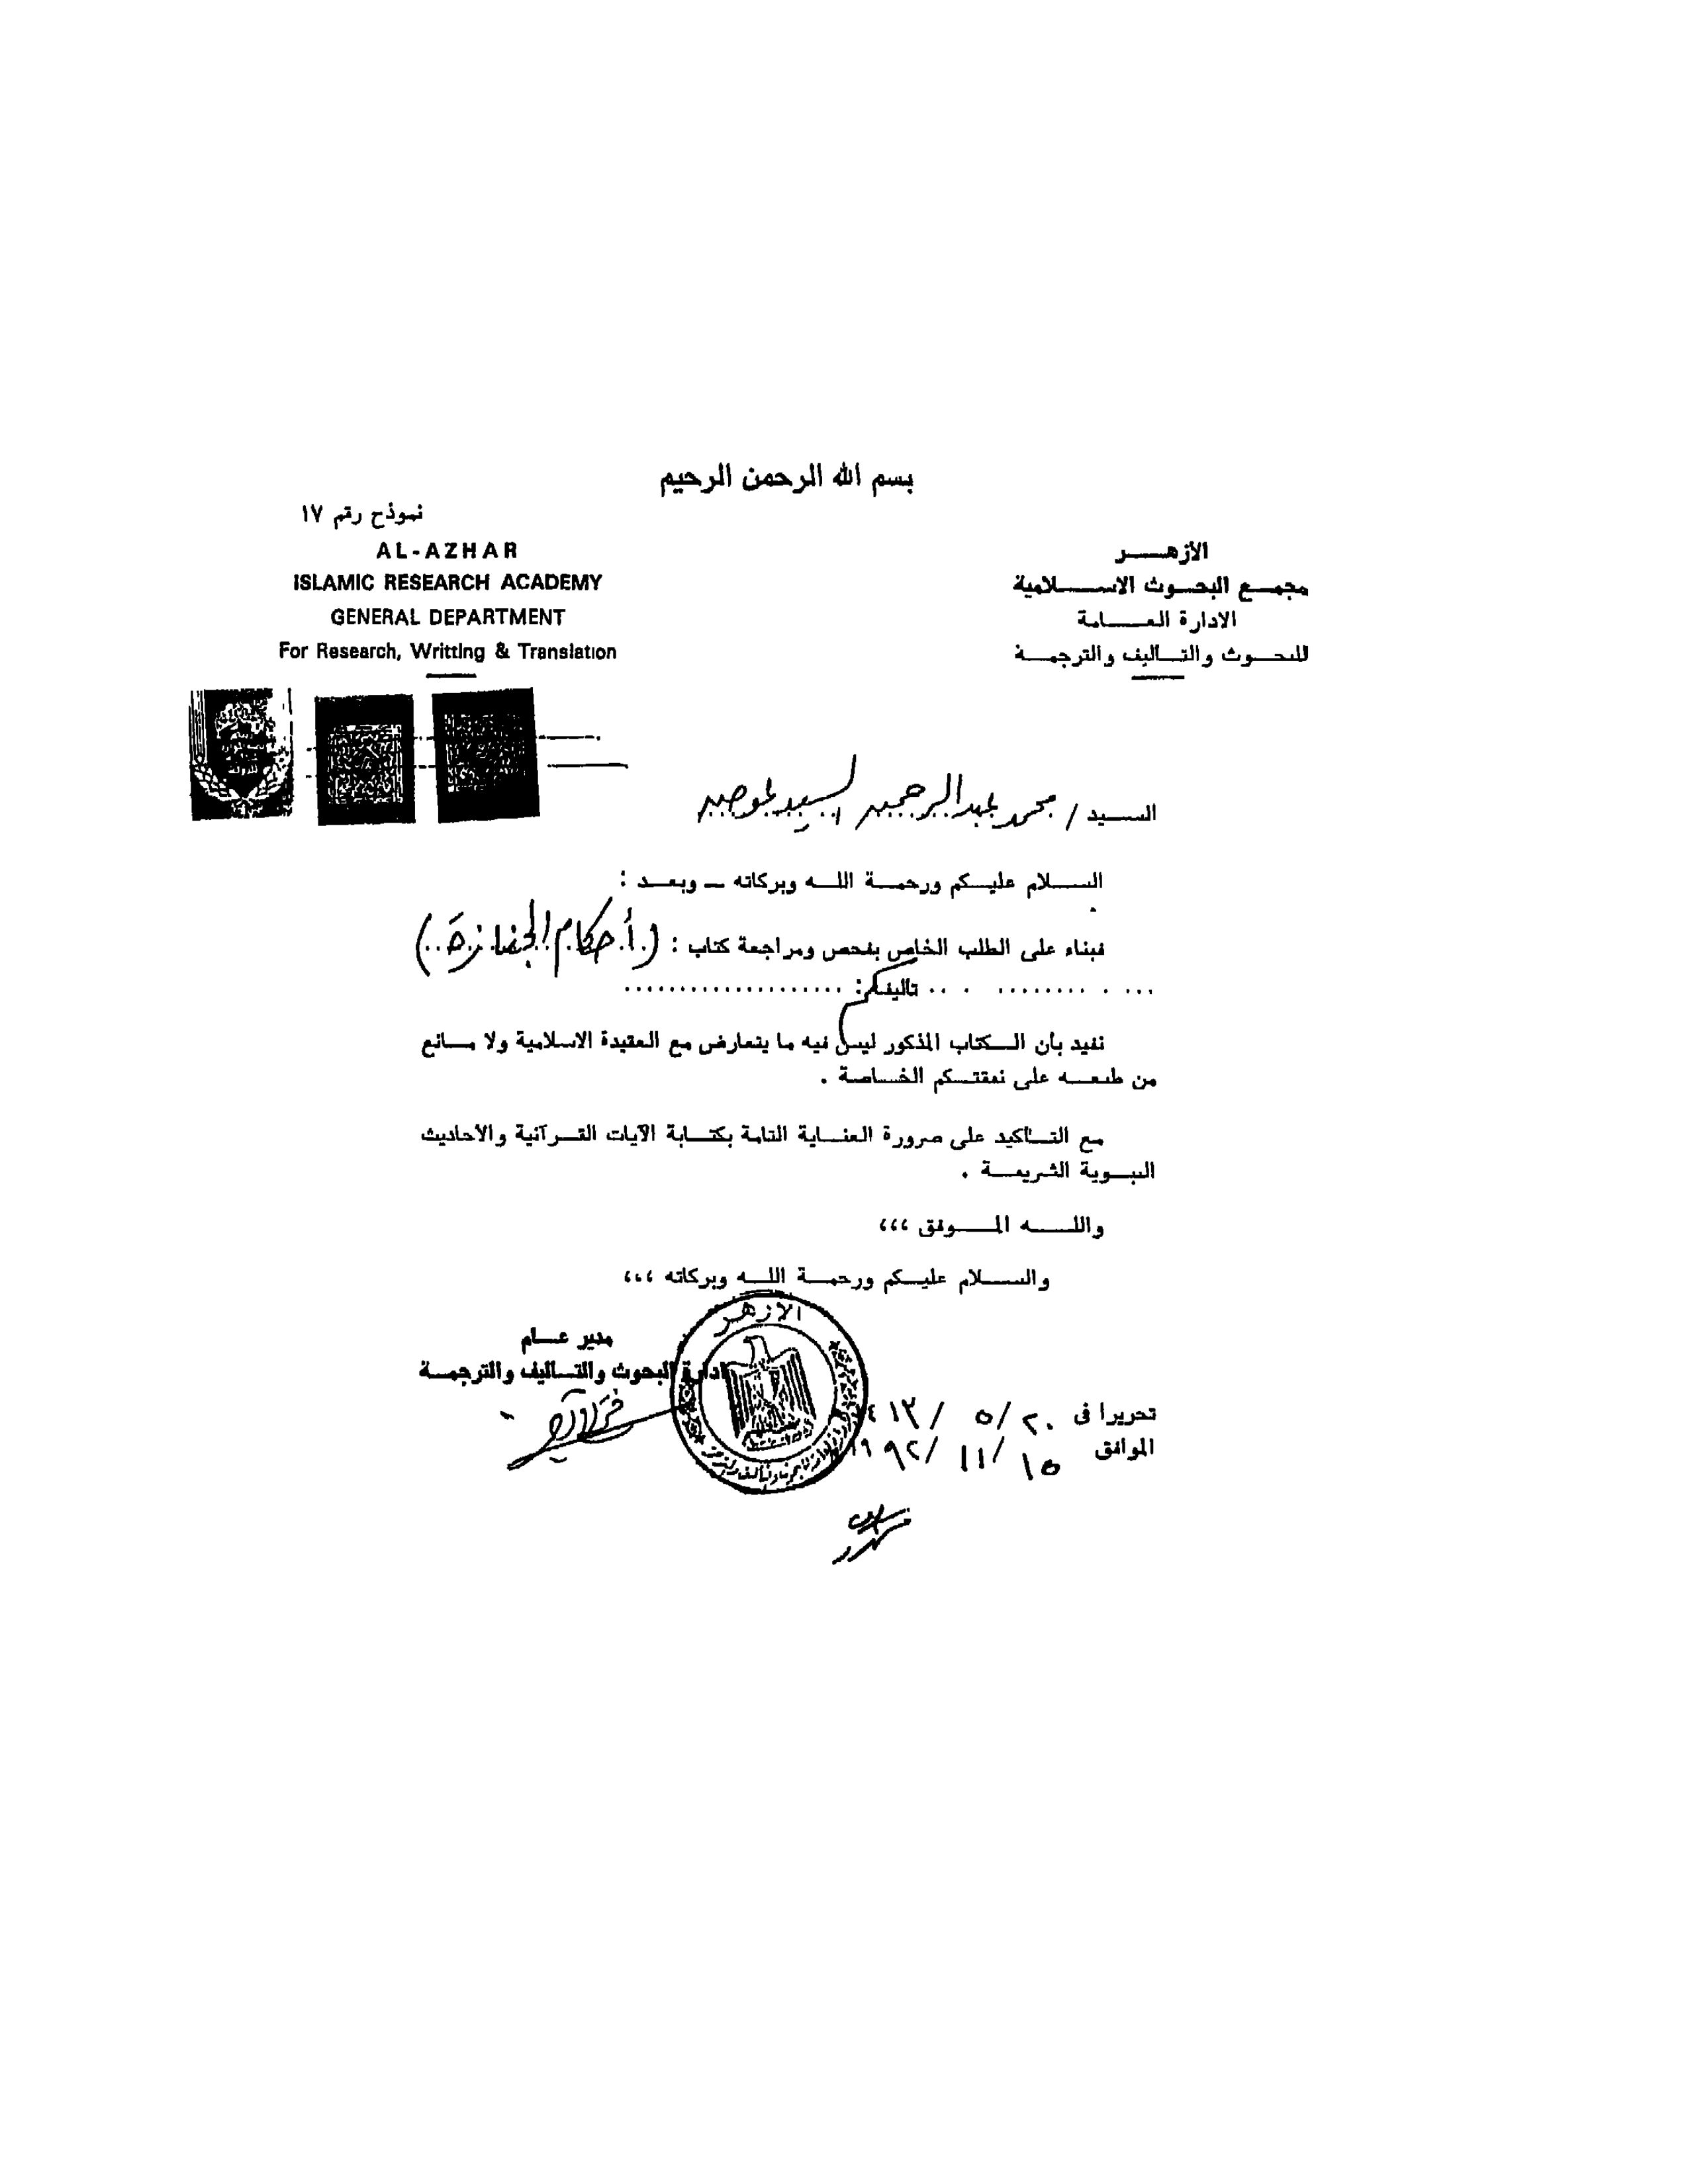 بسم الله الرحمن الرحيم
نموذج رقم ١٧
الأزهـــر
مجمـع البحـوث الاسـلامية
الادارة العـــامة
للبحـوث والتـأليف والترجمـة
AL-AZHAR
ISLAMIC RESEARCH ACADEMY
GENERAL DEPARTMENT
For Research, Writting & Translation
السـيد / محمد عبد الرحمن السيد عوض
السـلام عليـكم ورحمـة اللـه وبركاته ــ وبعـد :
فبناء على الطلب الخاص بفحص ومراجعة كتاب : (أحكام الجنازة)
تأليفكم :
نفيد بأن الـكتاب المذكور ليس فيه ما يتعارض مع العقيدة الاسلامية ولا مـانع
من طبعـه على نفقتـكم الخـاصة .
مع التـأكيد على ضرورة العنـاية التامة بكتـابة الآيات القـرآنية والأحاديث
النبـوية الشريفـة .
واللـــه المـــوفق ،،،
والسـلام عليـكم ورحمـة اللـه وبركاته ،،،
مدير عـام
ادارة البحوث والتـأليف والترجمـة
الازهـر
تحريرا فى ٢٠ / ٥ / ١٤١٣
الموافق ١٥ / ١١ / ١٩٩٢